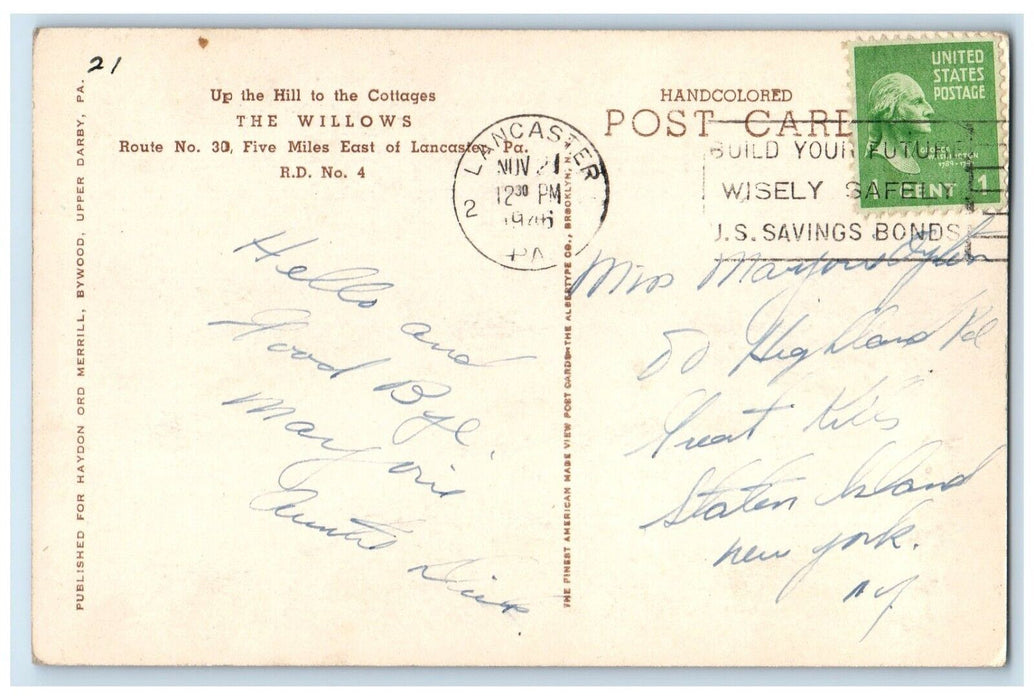 21
Up the Hill to the Cottages
THE WILLOWS
Route No. 30, Five Miles East of Lancaster, Pa.
R.D. No. 4
PUBLISHED FOR HAYDON ORD MERRILL, BYWOOD, UPPER DARBY, PA.
Hello and
Good Bye
Marjorie
Auntie
THE FINEST AMERICAN MADE VIEW POST CARDS—THE ALBERTYPE CO., BROOKLYN, N.
HANDCOLORED
POST CARD
LANCASTER
NOV 21
12 30 PM
1946
PA
2
BUILD YOUR FUTURE
WISELY SAFELY
U.S. SAVINGS BONDS
UNITED
STATES
POSTAGE
WASHINGTON
1 CENT 1
Miss Marjorie
80 Highland Rd
Great Kills
Staten Island
New York.
NY